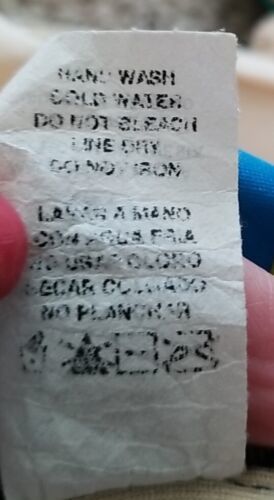 HAND WASH
COLD WATER
DO NOT BLEACH
LINE DRY
DO NOT IRON
LAVAR A MANO
CON AGUA FRIA
NO USE CLORO
SECAR COLGADO
NO PLANCHAR